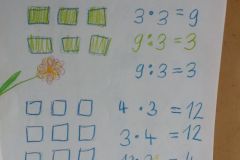 3 · 3 = 9
9 : 3 = 3
9 : 3 = 3
4 · 3 = 12
3 · 4 = 12